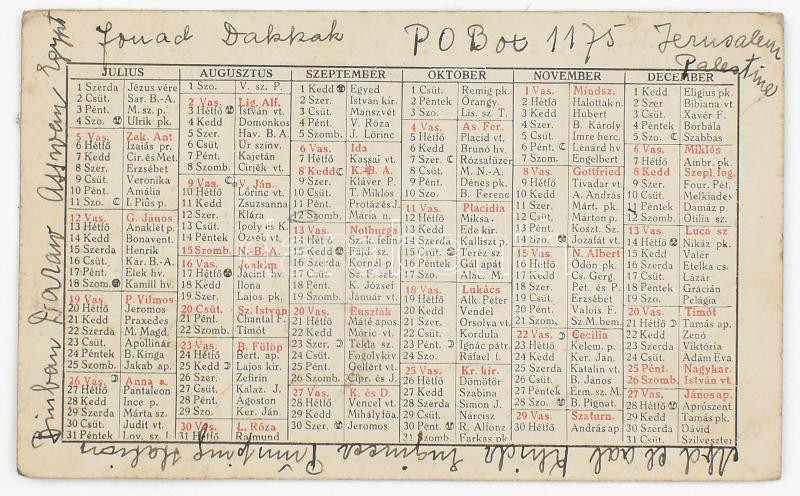 Fouad Dakkak   P O Box 1175   Jerusalem
Palestine
Binban Daraw Asswan Egypt
JULIUS
1 Szerda Jézus vére
2 Csüt. Sar. B.-A.
3 Pént. M. sz. p.
4 Szo. Ulrik pk.
5 Vas. Zak. Ant
6 Hétfő Izaiás pr.
7 Kedd Cir. és Met.
8 Szer. Erzsébet
9 Csüt. Veronika
10 Pént. Amália
11 Szo. I. Pius p.
12 Vas. G. János
13 Hétfő Anaklét p.
14 Kedd Bonavent.
15 Szerda Henrik
16 Csüt. Kar. B.-A.
17 Pént. Elek hv.
18 Szom. Kamill hv.
19 Vas. P. Vilmos
20 Hétfő Jeromos
21 Kedd Praxedes
22 Szerda M. Magd.
23 Csüt. Apollinár
24 Péntek B. Kinga
25 Szo. Jakab ap.
26 Vas. Anna a.
27 Hétfő Pantaleon
28 Kedd Ince p.
29 Szer. Márta sz.
30 Csüt. Judit vt.
31 Péntek Loy. sz. I.
AUGUSZTUS
1 Szo. V. sz. P.
2 Vas. Lig. Alf.
3 Hétfő István vt.
4 Kedd Domonkos
5 Szer. Hav. B. A.
6 Csüt. Úr színv.
7 Pént. Kajetán
8 Szom. Cirjék vt.
9 Vas. V. Ján.
10 Hétfő Lőrinc
11 Kedd Zsuzsanna
12 Szer. Klára
13 Csüt. Ipoly és K.
14 Péntek Özséb vt.
15 Szomb. N.-B. A.
16 Vas. Joakim
17 Hétfő Jácint hv.
18 Kedd Ilona
19 Szer. Lajos pk.
20 Csüt. Sz. István
21 Pént. Chantal F.
22 Szomb. Timót
23 Vas. B. Fülöp
24 Hétfő Bert. ap.
25 Kedd Lajos kir.
26 Szer. Zefirin
27 Csüt. Kalaz. J.
28 Pént. Ágoston
29 Szo. Ker. Ján.
30 Vas. L. Róza
31 Hétfő Rajmund
SZEPTEMBER
1 Kedd Egyed
2 Szer. István kir.
3 Csüt. Manszvét
4 Pént. V. Róza
5 Szomb. J. Lőrinc
6 Vas. Ida
7 Hétfő Kassai vt.
8 Kedd K.-B. A.
9 Szer. Kláver P.
10 Csüt. T. Miklós
11 Pént. Protáz és J.
12 Szomb. Mária n.
13 Vas. Notburga
14 Hétfő Sz. † felm.
15 Kedd Fájd. sz.
16 Szer. Kornél
17 Csüt. Sz. F. seb.
18 Pént. K. József
19 Szomb. Január vt.
20 Vas. Euszták
21 Hétfő Máté apos.
22 Kedd Móric vt.
23 Szer. Tekla sz.
24 Csüt. Fogolykiv.
25 Pént. Gellért vt.
26 Szomb. Cipr. és J.
27 Vas. K. és D.
28 Hétfő Vencel vt.
29 Kedd Mihályfőa.
30 Szer. Jeromos
OKTOBER
1 Csüt. Remig pk.
2 Péntek Őrangy.
3 Szo. Lis. sz T.
4 Vas. As. Fer.
5 Hétfő Placid vt.
6 Kedd Brunó hv.
7 Szer. Rózsafüzér
8 Csüt. M. N.-A.
9 Pént. Dénes pk.
10 Szo. B. Ferenc
11 Vas. Placidia
12 Hétfő Miksa
13 Kedd Ede kir.
14 Szer. Kalliszt p.
15 Csüt. Teréz sz.
16 Péntek Gál apát
17 Szo. Alac. M.
18 Vas. Lukács
19 Hétfő Alk. Péter
20 Kedd Vendel
21 Szer. Orsolya vt.
22 Csüt. Kordula
23 Pént. Ignác pátr.
24 Szo. Ráfael f.
25 Vas. Kr. kir.
26 Hétfő Dömötör
27 Kedd Szabina
28 Szer. Simon J.
29 Csüt. Nárcisz
30 Pént. R. Alfonz
31 Szomb. Farkas pk.
NOVEMBER
1 Vas. Mindsz.
2 Hétfő Halottak n.
3 Kedd Hubert
4 Szer. B. Károly
5 Csüt. Imre herc.
6 Pént. Lénárd hv.
7 Szom. Engelbert
8 Vas. Gottfried
9 Hétfő Tivadar vt.
10 Kedd A. András
11 Szer. Márt. pk.
12 Csüt. Márton p.
13 Pént. Koszt. Sz.
14 Szo. Jozafát vt.
15 Vas. N. Albert
16 Hétfő Ödön pk.
17 Kedd Cs. Gerg.
18 Szer. Pét. és P.
19 Csüt. Erzsébet
20 Pént. Valois F.
21 Szom. Sz M. bem.
22 Vas. Cecilia
23 Hétfő Kelem. p.
24 Kedd Ker. Ján.
25 Szer. Katalin vt.
26 Csüt. B. János
27 Pént. Erm. sz. M.
28 Szo. B. Pignat.
29 Vas. Szaturn.
30 Hétfő András ap.
DECEMBER
1 Kedd Eligius pk.
2 Szer. Bibiana vt.
3 Csüt. Xavér F.
4 Péntek Borbála
5 Szo. Szabbas
6 Vas. Miklós
7 Hétfő Ambr. pk.
8 Kedd Szepl. fog.
9 Szer. Four. Pét.
10 Csüt. Melkiades
11 Péntek Damáz p.
12 Szomb. Otília sz.
13 Vas. Luca sz.
14 Hétfő Nikáz pk.
15 Kedd Valér
16 Szerda Etelka cs.
17 Csüt. Lázár
18 Péntek Grácián
19 Szo. Pelágia
20 Vas. Timót
21 Hétfő Tamás ap.
22 Kedd Zenó
23 Szerda Viktória
24 Csüt. Ádám Éva
25 Pént. Nagykar.
26 Szomb. István vt.
27 Vas. János ap.
28 Hétfő Aprószent
29 Kedd Tamás pk.
30 Szerda Dávid
31 Csüt. Szilveszter
Engineer Pumping Station